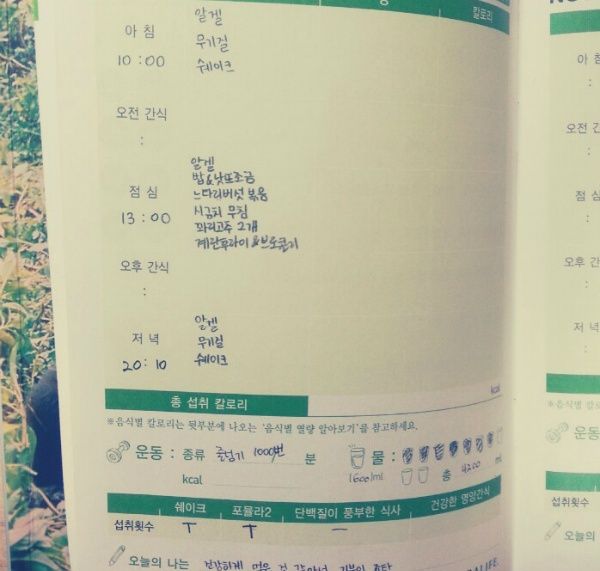 칼로리
알겔
아 침
무기걸
10 : 00
쉐이크
오전 간식
:
알겔
밥&낫또조금
느타리버섯 볶음
점 심
시금치 무침
13 : 00
꽈리고추 2개
계란후라이&브로콜리
오후 간식
:
알겔
저 녁
무기걸
20 : 10
쉐이크
총 섭취 칼로리
kcal
※음식별 칼로리는 뒷부분에 나오는 '음식별 열량 알아보기'을 참고하세요.
운동 : 종류 줄넘기 1000번 분
물 :
kcal
1600ml 총 4200 ml
쉐이크 포뮬라2 단백질이 풍부한 식사 건강한 영양간식
섭취횟수 T T 一
오늘의 나는 건강하게 먹은 것 같아서 기분이 좋다
아 침
:
오전 간
:
점 심
:
오후 간
:
저 녁
:
※음식별 칼로
운동
섭취횟수
오늘의